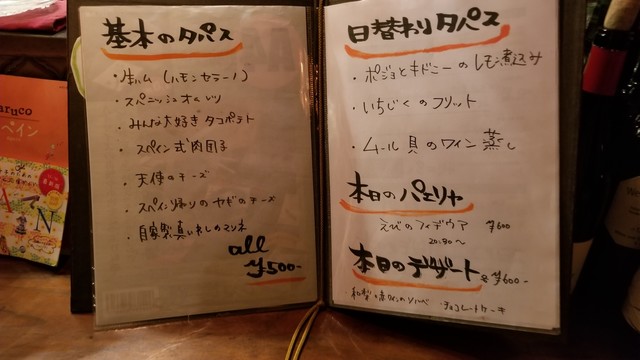 基本のタパス
・生ハム（ハモンセラーノ）
・スペニッシュオムレツ
・みんな大好きタコポテト
・スペイン式肉団子
・天使のチーズ
・スペイン帰りのヤギのチーズ
・自家製真いわしのマリネ
all
¥500-
日替わりタパス
・ポジョとキドニーのレモン煮込み
・いちじくのフリット
・ムール貝のワイン蒸し
本日のパエリャ
えびのフィデウア ¥600
20:30〜
本日のデザート ¥600-
・和梨と赤ワインのソルベ ・チョコレートケーキ
aruco
ペイン